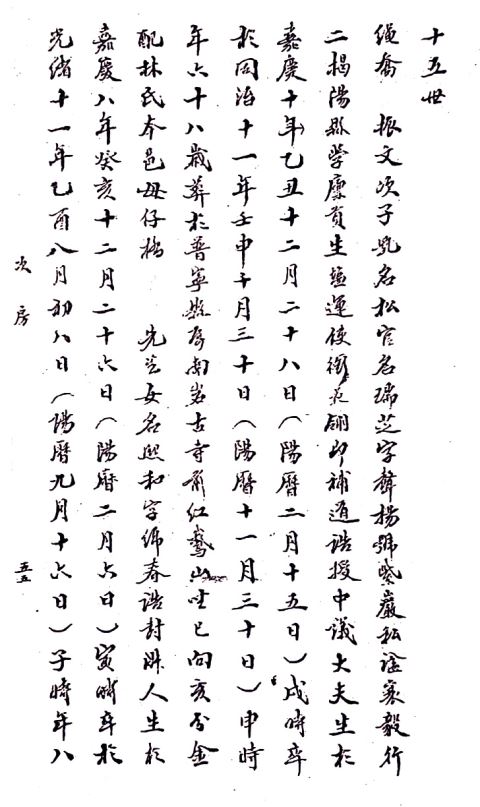 十五世
繩喬 振文次子乳名松官名瑞芝字聲揚號紫巖私諡襄毅行
二揭陽縣学廩貢生塩運使銜花翎即補道誥授中議大夫生於
嘉慶十年乙丑十二月二十八日（陽曆二月十五日）戌時卒
於同治十一年壬申十月三十日（陽曆十一月三十日）申時
年六十八歲葬於普寧縣属南岩古寺前紅鵞山坐巳向亥分金
配林氏本邑毋仔橋 先公女名熙和字佈春誥封淋人生於
嘉慶八年癸亥十二月二十六日（陽曆二月六日）寅時卒於
光緒十一年乙酉八月初八日（陽曆九月十六日）子時年八
次房
五五